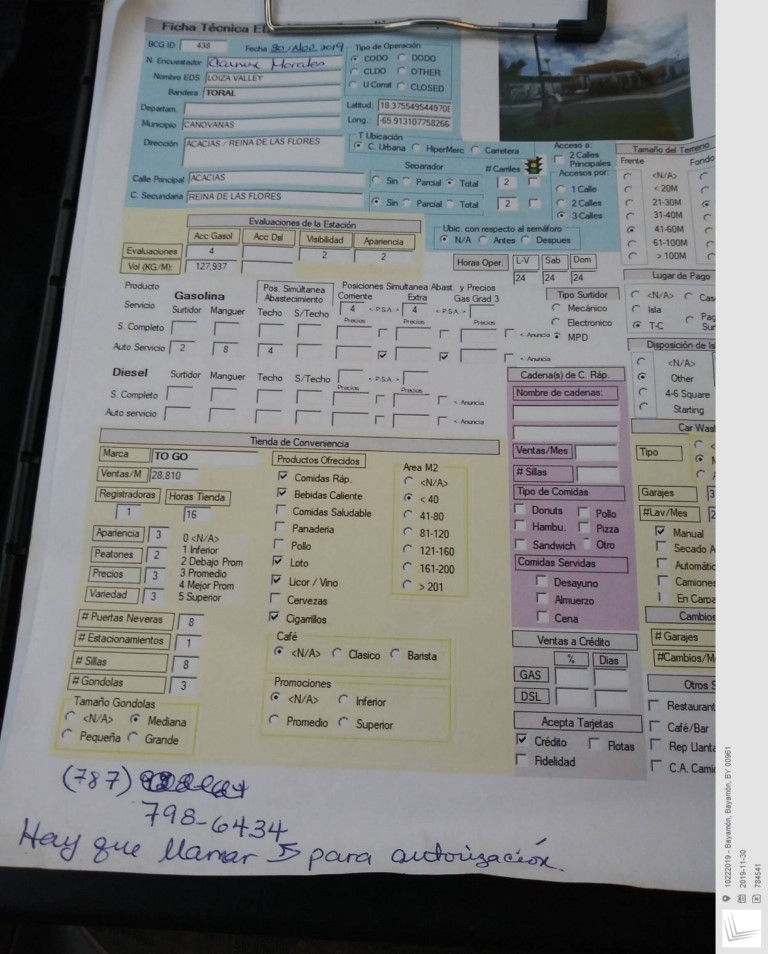 Ficha Técnica
BCG ID 438 Fecha 30/Nov. 2019 Tipo de Operación
N. Encuestador Morales CODO DODO
Nombre EDS LOIZA VALLEY CLDO OTHER
Bandera TORAL U Const CLOSED
Departam. Latitud: 18.3755495449708
Municipio CANOVANAS Long.: -65.913107758266
Dirección ACACIAS / REINA DE LAS FLORES T Ubicación
C. Urbana HiperMerc Carretera
Acceso a:
2 Calles Principales
Separador # Carriles Accesos por:
Calle Principal ACACIAS Sin Parcial Total 2 1 Calle
C. Secundaria REINA DE LAS FLORES Sin Parcial Total 2 2 Calles
3 Calles
Tamaño del Terreno
Frente Fondo
<N/A>
< 20M
21-30M
31-40M
41-60M
61-100M
> 100M
Evaluaciones de la Estación
Acc Gasol Acc Dsl Visibilidad Apariencia
Evaluaciones 4 2 2
Vol (KG/M): 127,937
Ubic. con respecto al semáforo
N/A Antes Despues
Horas Oper. L-V Sab Dom
24 24 24
Lugar de Pago
<N/A>
Isla
T-C
Producto Pos. Simúltanea Abastecimiento Posiciones Simultanea Abast. y Precios
Servicio Gasolina Corriente Extra Gas Grad 3
Surtidor Manguer Techo S/Techo 4 < P.S.A. > 4 < P.S.A. >
S. Completo Precios Precios Precios < Anuncia
Auto Servicio 2 8 4 < Anuncia
Tipo Surtidor
Mecánico
Electronico
MPD
Disposición de
<N/A>
Other
4-6 Square
Starting
Diesel Surtidor Manguer Techo S/Techo < P.S.A. >
S. Completo Precios Precios < Anuncia
Auto servicio < Anuncia
Cadena(s) de C. Ráp.
Nombre de cadenas:
Ventas/Mes
# Sillas
Tipo de Comidas
Donuts Pollo
Hambu. Pizza
Sandwich Otro
Comidas Servidas
Desayuno
Almuerzo
Cena
Tienda de Conveniencia
Marca TO GO
Ventas/M 28,810
Registradoras Horas Tienda
1 16
Apariencia 3 0 <N/A>
1 Inferior
Peatones 2 2 Debajo Prom
Precios 3 3 Promedio
4 Mejor Prom
Variedad 3 5 Superior
# Puertas Neveras 8
# Estacionamientos 1
# Sillas 8
# Gondolas 3
Tamaño Gondolas
<N/A> Mediana
Pequeña Grande
Productos Ofrecidos
Comidas Ráp.
Bebidas Caliente
Comidas Saludable
Panaderia
Pollo
Loto
Licor / Vino
Cervezas
Cigarrillos
Area M2
<N/A>
< 40
41-80
81-120
121-160
161-200
> 201
Café
<N/A> Clasico Barista
Promociones
<N/A> Inferior
Promedio Superior
Ventas a Crédito
% Dias
GAS
DSL
Acepta Tarjetas
Crédito Flotas
Fidelidad
Car
Tipo
Garajes 3
#Lav/Mes 2
Manual
Secado
En
Cambios
# Garajes
#Cambios/M
Otros
Restaurant
Café/Bar
Rep
C.A.
(787)
798-6434
Hay que llamar para autorización.
10222019 - Bayamón, Bayamón, BY 00961
2019-11-30
784541